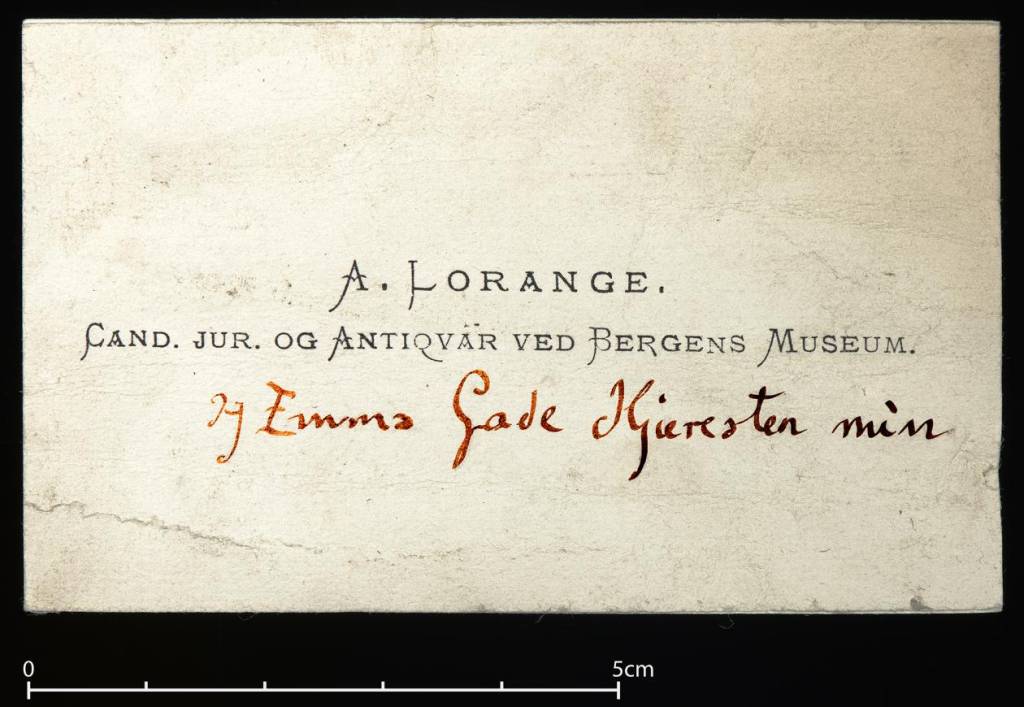 A. LORANGE.
CAND. JUR. OG ANTIQVÄR VED BERGENS MUSEUM.
og Emma Gade Kjæresten min
0 5cm